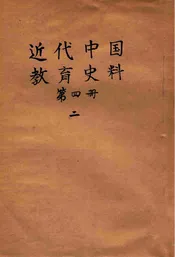 近代中国
教育史料
第四册
二